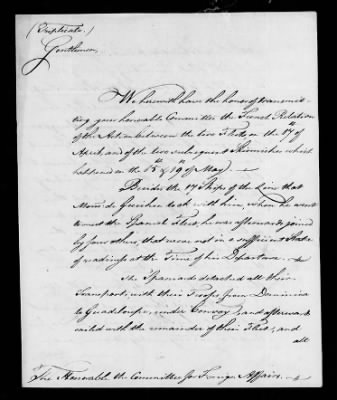 (Triplicate.)
Gentlemen,
We herewith have the honor of transmit-
ting your honorable Committee the French Relation
of the Action between the two Fleets on the 17th
April, and of the two subsequent Skirmishes which
happened on the 15th & 19th of May.
Besides the 17 Ships of the Line that
Mons. de Guichen took with him, when he went
to meet the Spanish Fleet, he was afterwards joined
by four others, that were not in a sufficient State
of readiness at the Time of his Departure.
The Spaniards detached all their
Transports, with their Troops from Dominica
to Guadaloupe, under Convoy, and afterwards
sailed with the remainder of their Fleet, and
all
The Honorable the Committee for Foreign Affairs.